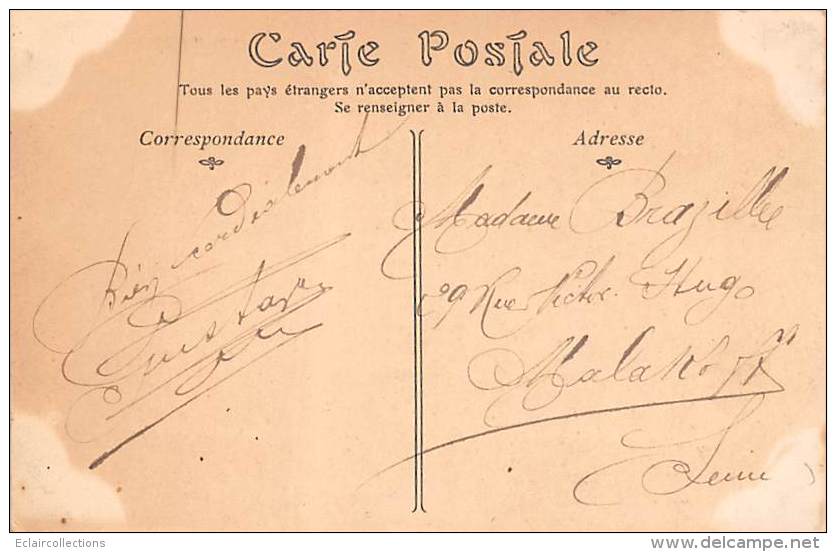 Carte Postale
Tous les pays étrangers n'acceptent pas la correspondance au recto.
Se renseigner à la poste.
Correspondance
Bien cordialement
Gustave
Adresse
Madame Brazillee
29 Rue Victor Hugo
Malakoff
Seine
Eclaircollections
www.delcampe.net